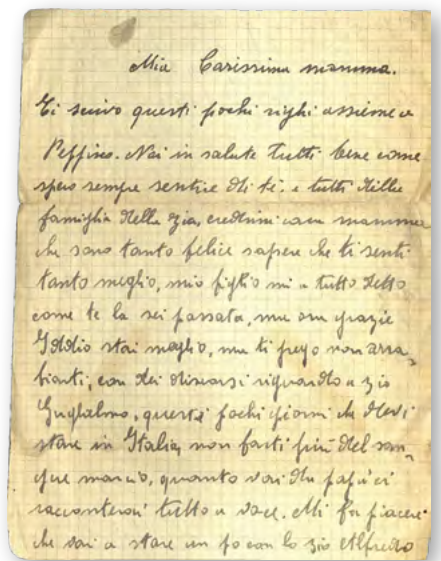 Mia Carissima mamma.
Ti scrivo questi pochi righi assieme a
Peppino. Noi in salute tutti bene come
spero sempre sentire di te. e tutti della
famiglia della zia, credimi cara mamma
che sono tanto felice sapere che ti senti
tanto meglio, mio figlio mi a tutto detto
come te la sei passata, ma ora grazie
Iddio stai meglio, ma ti prego non arra-
biarti, con dei discorsi riguardo a zio
Guglielmo, questi pochi giorni che devi
stare in Italia, non farti più del san-
gue marcio, quanto vai da papà ci
racconterai tutto a voce. Mi fa piacere
che vai a stare un po con lo zio Alfredo